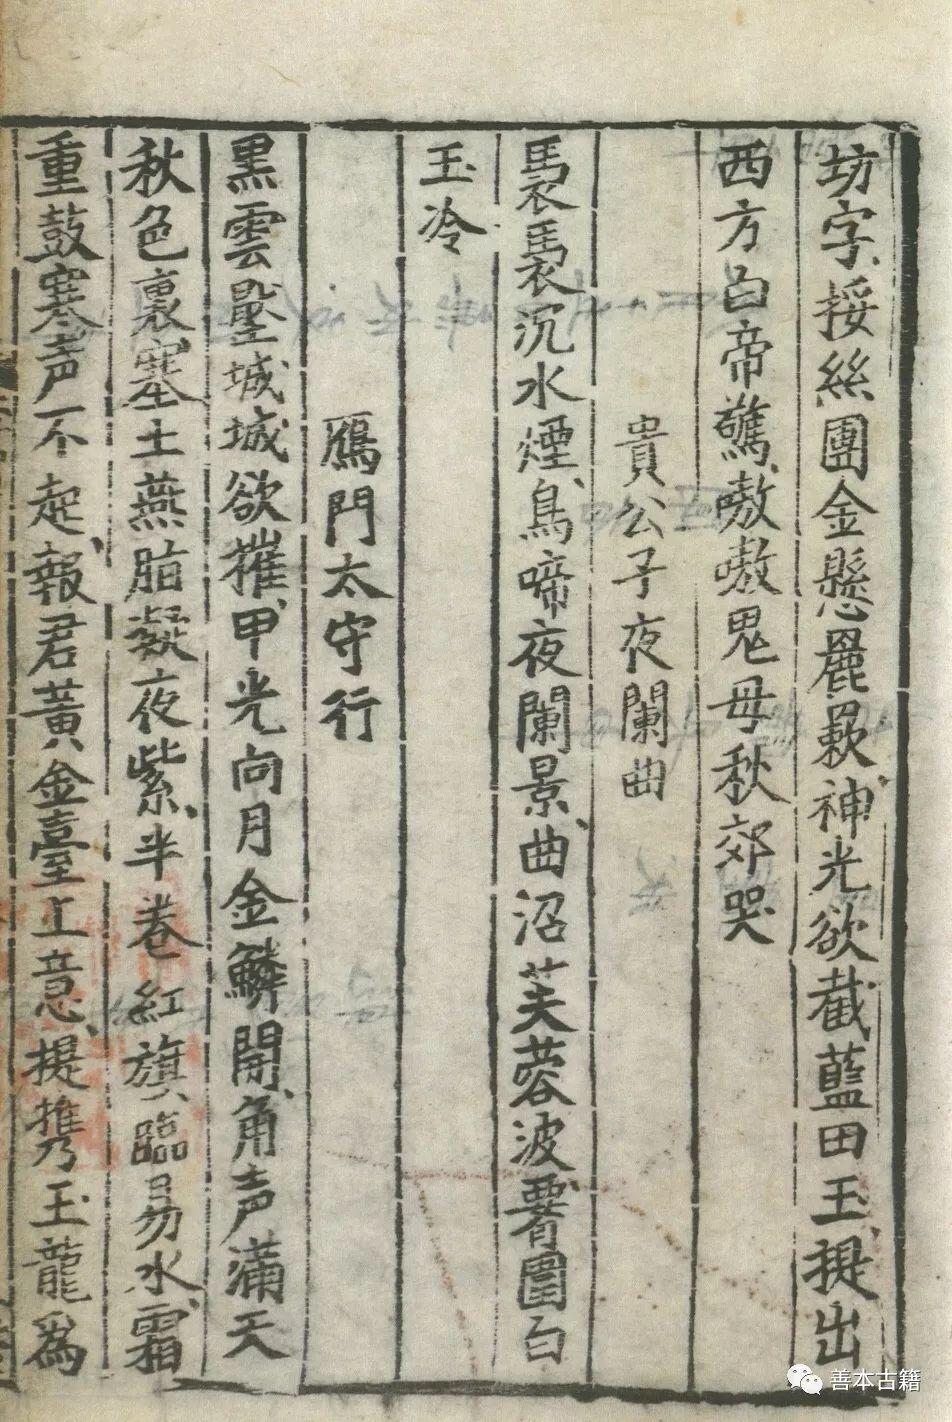 坊字、挼絲團金懸䍡神光欲截藍田玉、提出
西方白帝驚、嗷嗷鬼母秋郊哭
貴公子夜闌曲
裊裊沉水煙、烏啼夜闌景、曲沼芙蓉波、腰圍白
玉冷
鴈門太守行
黑雲壓城城欲摧、甲光向月金鱗開、角声滿天
秋色裏、塞土燕脂凝夜紫、半卷紅旗臨易水、霜
重鼓寒声不起、報君黃金臺上意、提携玉龍為
善本古籍